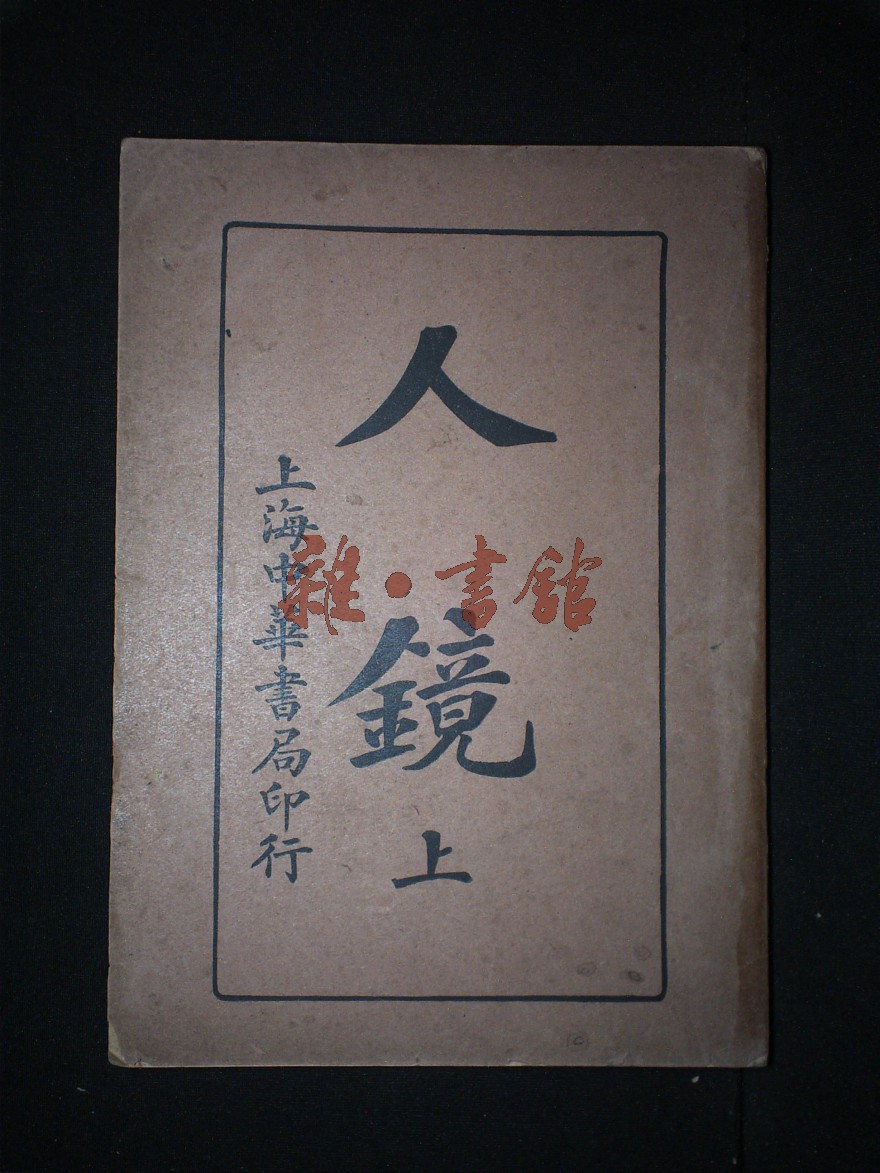 人鏡 上
上海中華書局印行
雜·書館